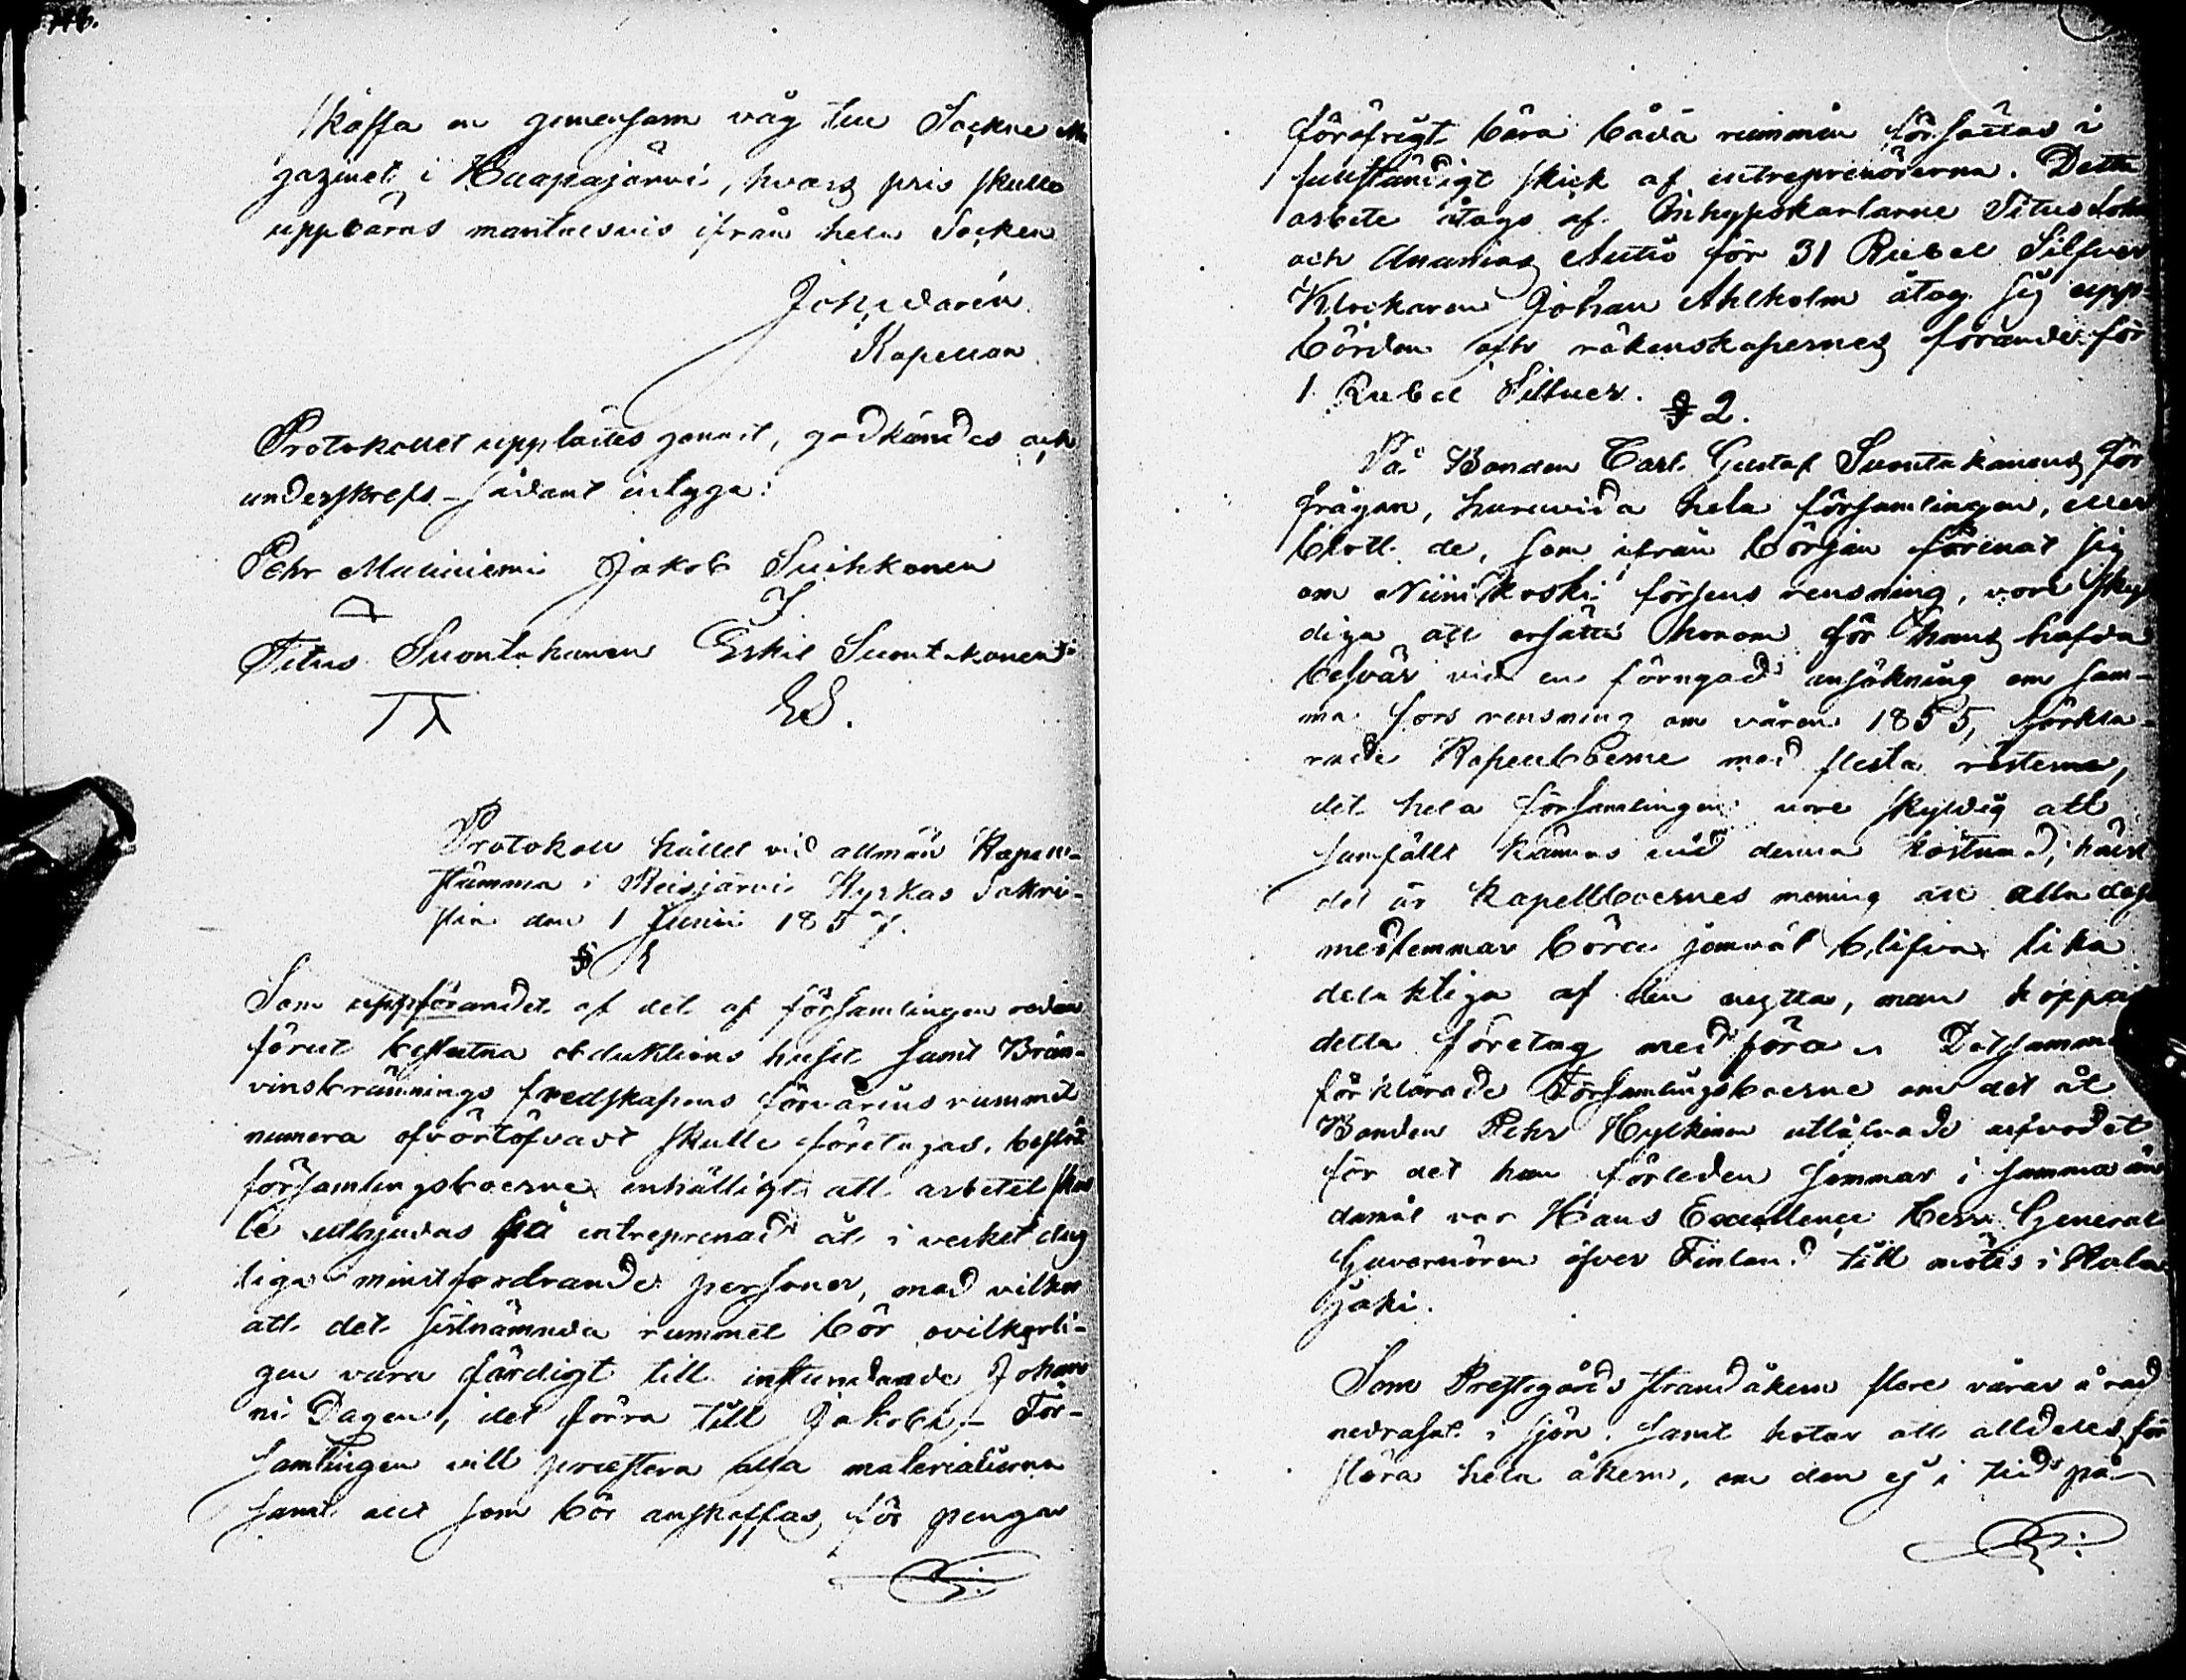 skaffa en gemensam våg till Sockne Ma
gazinet i Haapajärvi, hvars pris skulle
uppbäras mantalsvis ifrån hela Socken
Kapellan
Protokollet uppläites genast, godkändes och
underskrefs – sådant intyga:
Pehr Muiniemi Jakob Suihkonen
Titus Suontakanen Eskil Suontakanen
ES.
Protokoll hållet vid allmän Kapell-
stämma i Reisjärvi Kyrkas Sakri-
stia den 1 Junii 1857.
§ 1
Som uppförandet af det af församlingen redan
förut beslutna obduktions huset samt Brän-
vinsbrännings redskapens förvarings rummet
numera ofördröfvadt skulle företagas, beslöt
församlingsboerne enhälligt att arbetet skul
le utbjudas på entreprenad åt i verket dug
liga minstfordrande personer, med vilkor
att det sistnämnda rummet bör ovilkorli-
gen vara färdigt till instundande Johan
ni Dagen, det förra till Jakobi, – För-
samlingen vill præstera alla materialierna
samt allt som bör anskaffas för pengar
föröfrigt böra båda rummen försättas i
fullständigt skick af entreprenörerna. Detta
arbete åtogs af Inhyseskarlarne Titus
och Ananias Autio för 31 Rubel Silfver
Klockaren Johan Ahlholm åtog sig upp-
börden och räkenskapernes förande för
1 Rubel Silfver.
§ 2.
På Bonden Carl Gustaf Suontakanens för
frågan, huruvida hela församlingen, eller
blott de, som ifrån början förenat sig
om Niinikoski forsens rensning, vore skyl
diga att ersätta honom för hans hafda
besvär vid en förnyad ansökning om sam-
ma fors rensning om våren 1855, förkla-
rade Kapellboerne med flesta rösterna,
det hela församlingen vore skyldig att
samfällt kännas vid denna kostnad, hälst
det är kapellboernes mening att alla dess
medlemmar böra jemväl blifva lika
delaktiga af den nytta, man hoppas
detta företag medföra. Detsamma
förklarade Församlingsboerne om det åt
Bonden Pehr Hylkinen utlåfvade arfvodet
för det han förleden sommar i samma än
damål var Hans Excellence Herr General
Guvernören öfver Finland till mötes i Kala
joki.
Som Prestgårds strandåkern flere vårar å rad
nedrasat i sjön, samt hotar att alldeles för
störa hela åkern, om den ej i tid på